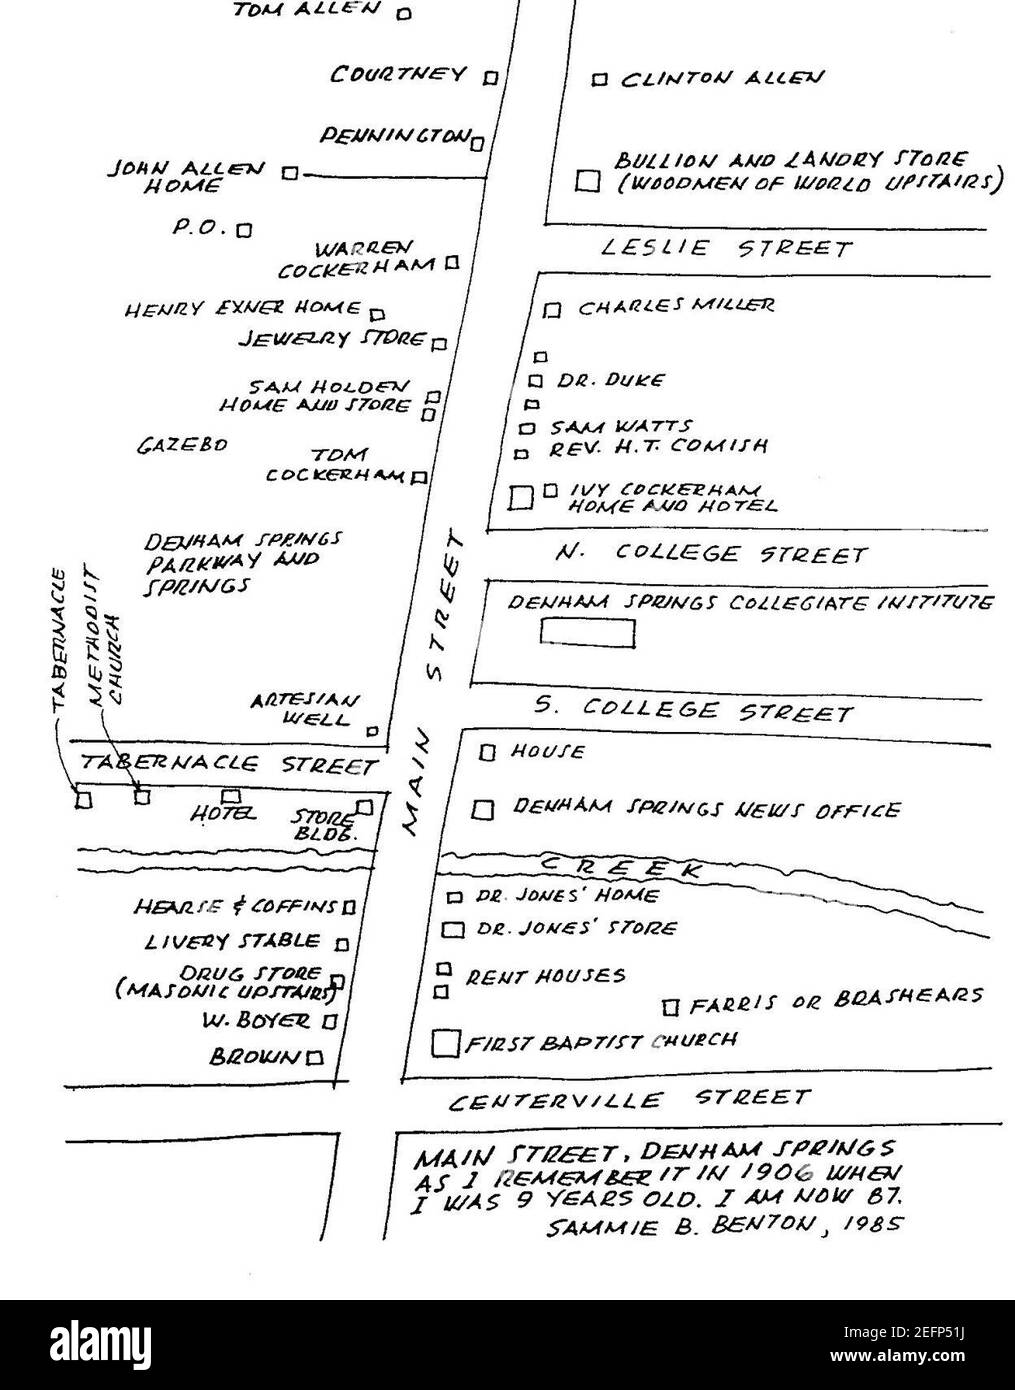 TOM ALLEN
COURTNEY
CLINTON ALLEN
PENNINGTON
JOHN ALLEN
HOME
BULLION AND LANDRY STORE
(WOODMEN OF WORLD UPSTAIRS)
P.O.
WARREN
COCKERHAM
LESLIE STREET
HENRY EXNER HOME
CHARLES MILLER
JEWELRY STORE
SAM HOLDEN
HOME AND STORE
DR. DUKE
SAM WATTS
REV. H.T. COMISH
GAZEBO
TOM
COCKERHAM
IVY COCKERHAM
HOME AND HOTEL
DENHAM SPRINGS
PARKWAY AND
SPRINGS
N. COLLEGE STREET
DENHAM SPRINGS COLLEGIATE INSTITUTE
TABERNACLE
METHODIST
CHURCH
MAIN STREET
ARTESIAN
WELL
S. COLLEGE STREET
TABERNACLE STREET
HOUSE
HOTEL
STORE
BLDG.
DENHAM SPRINGS NEWS OFFICE
CREEK
HEARSE & COFFINS
DR. JONES' HOME
LIVERY STABLE
DR. JONES' STORE
DRUG STORE
(MASONIC UPSTAIRS)
RENT HOUSES
W. BOYER
FARRIS OR BRASHEARS
BROWN
FIRST BAPTIST CHURCH
CENTERVILLE STREET
MAIN STREET, DENHAM SPRINGS
AS I REMEMBER IT IN 1906 WHEN
I WAS 9 YEARS OLD. I AM NOW 87.
SAMMIE B. BENTON, 1985
alamy
Image ID: 2EFP51J
www.alamy.com